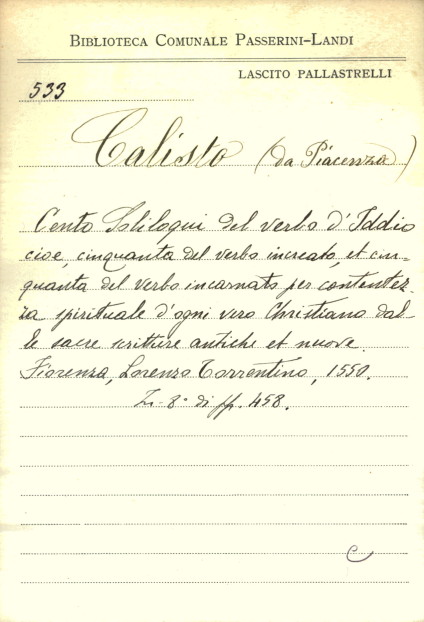 BIBLIOTECA COMUNALE PASSERINI-LANDI
LASCITO PALLASTRELLI
533
Calisto (da Piacenza)
Cento Soliloqui del verbo d'Iddio
cioè, cinquanta del verbo increato, et cin-
quanta del verbo incarnato per contentez-
za spirituale d'ogni vero Christiano dal-
le sacre scritture antiche et nuove.
Fiorenza, Lorenzo Torrentino, 1550.
In-8° di pp. 458.
C